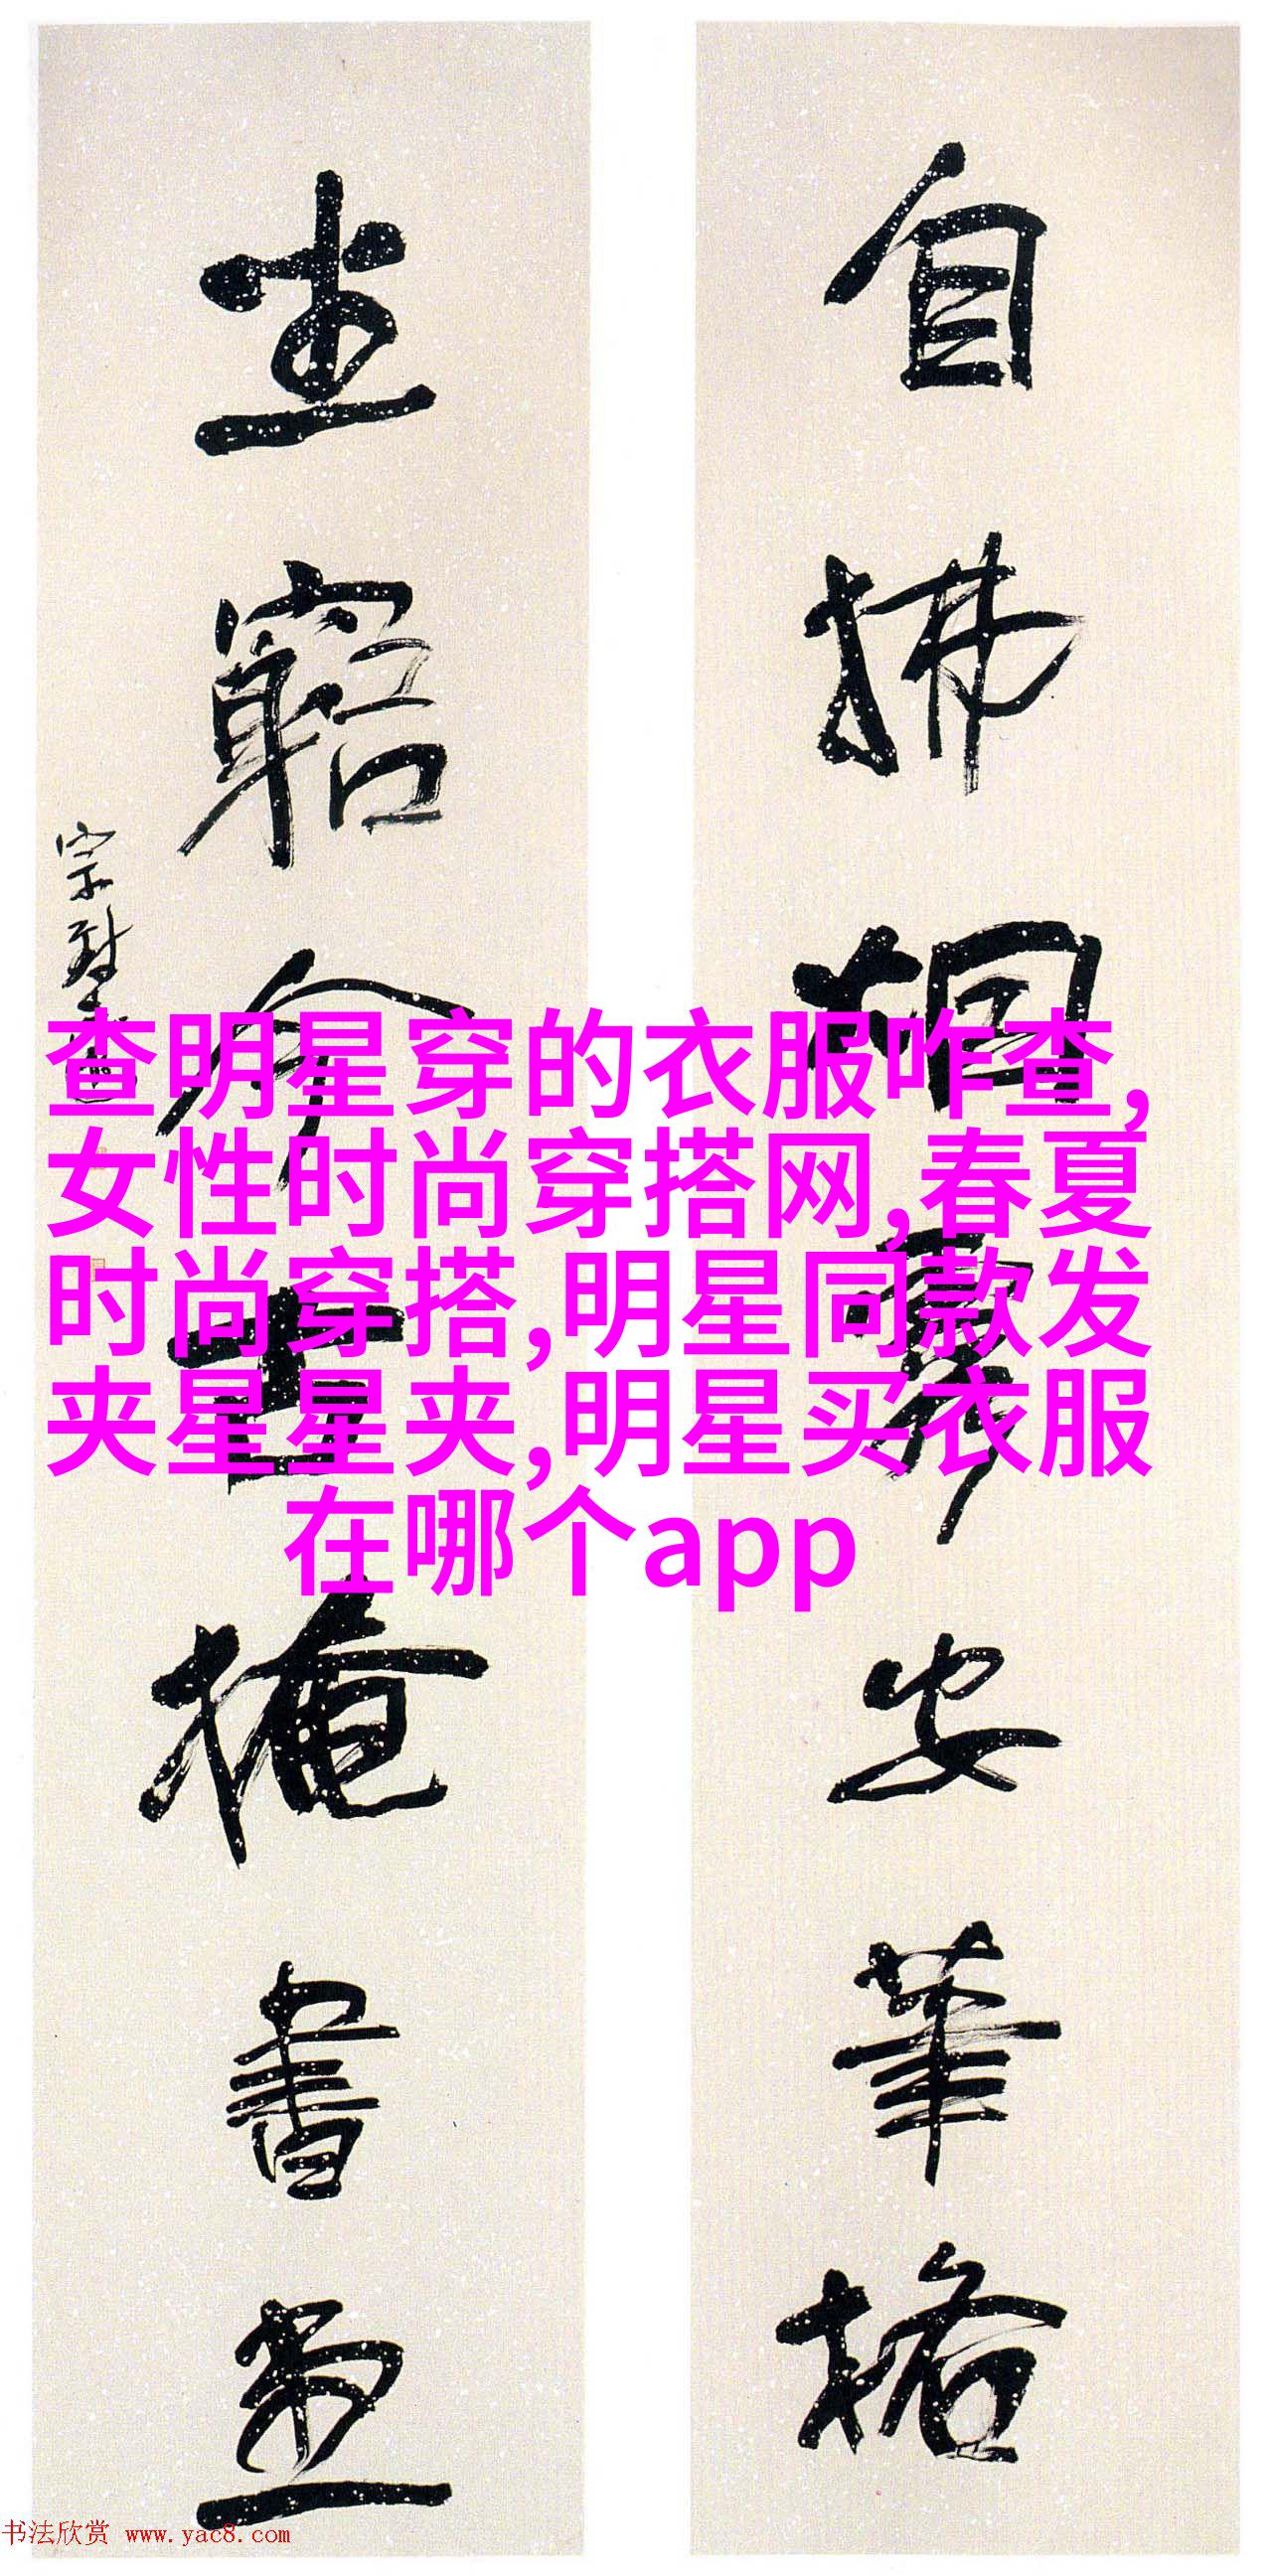 自拂烟霞安筆格
坐窮今古掩書堂
查明星穿的衣服咋查,
女性时尚穿搭网,春夏
时尚穿搭,明星同款发
夹星星夹,明星买衣服
在哪个app
书法欣赏 www.yac8.com